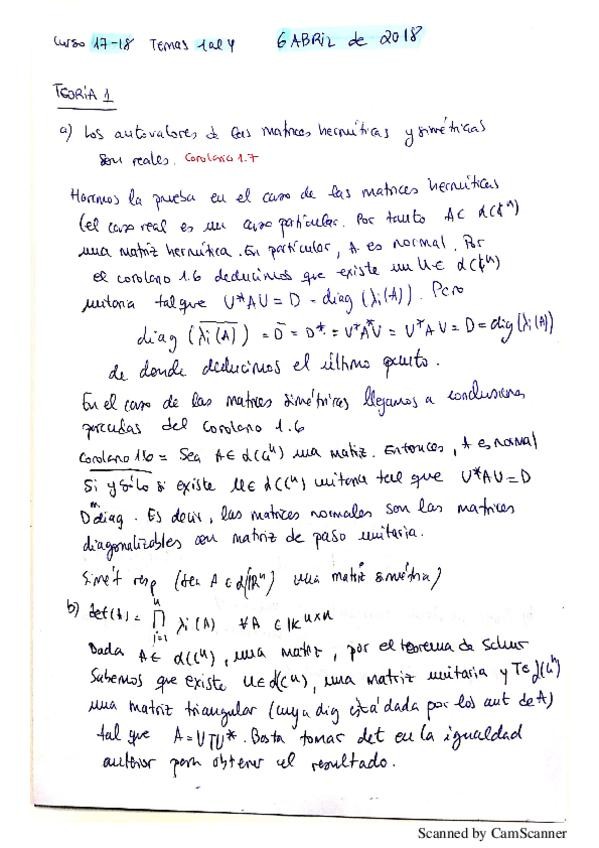 Curso 17-18 Temas 1 al 4 6 ABRIL de 2018
TEORIA 1
a) Los autovalores de las matrices hermíticas y simétricas
son reales. Corolario 1.7
Haremos la prueba en el caso de las matrices hermíticas
(el caso real es un caso particular. Por tanto A ∈ ℒ(ℂⁿ)
una matriz hermítica. En particular, A es normal. Por
el corolario 1.6 deducimos que existe un U ∈ ℒ(ℂⁿ)
unitaria tal que U*AU = D = diag (λi(A)). Pero
diag (λi(A)) = D̄ = D* = U*A*U = U*AU = D = diag (λi(A))
de donde deducimos el último punto.
En el caso de las matrices simétricas llegamos a conclusiones
parecidas del Corolario 1.6
Corolario 1.6 = Sea A ∈ ℒ(ℂⁿ) una matriz. Entonces, A es normal
Si y sólo si existe U ∈ ℒ(ℂⁿ) unitaria tal que U*AU = D
D diag. Es decir, las matrices normales son las matrices
diagonalizables con matriz de paso unitaria.
Simét resp (sea A ∈ ℒ(ℝⁿ) una matriz simétrica)
b) det(A) = ∏ᵢ₌₁ⁿ λi(A) ∀A ∈ 𝕂ⁿˣⁿ
Dada A ∈ ℒ(ℂⁿ), una matriz, por el teorema de Schur
Sabemos que existe U ∈ ℒ(ℂⁿ), una matriz unitaria y T ∈ ℒ(ℂⁿ)
una matriz triangular (cuya diag está dada por los aut de A)
tal que A = UTU*. Basta tomar det en la igualdad
anterior para obtener el resultado.
Scanned by CamScanner